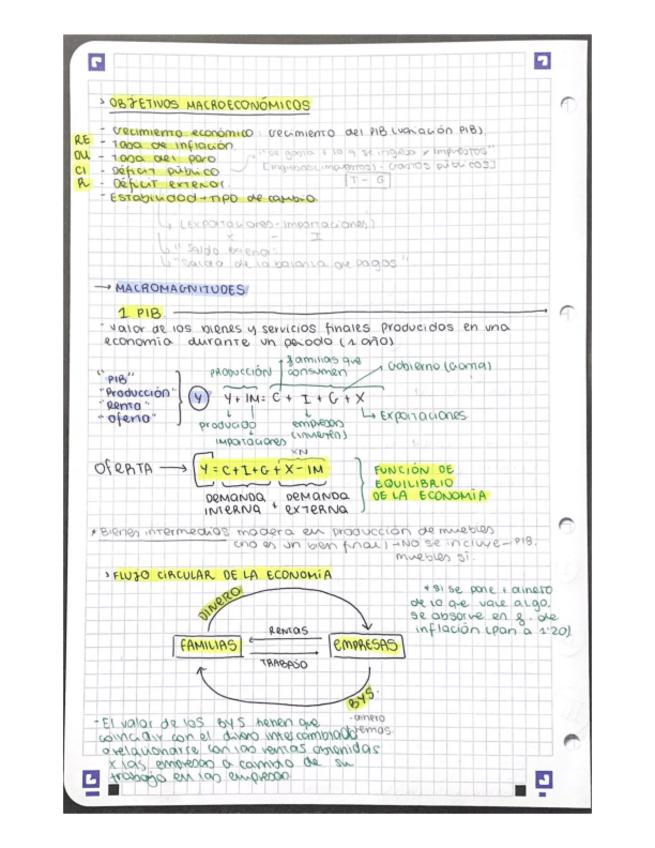 > OBJETIVOS MACROECONÓMICOS
- Crecimiento económico: crecimiento del PIB (variación PIB).
RE - Tasa de inflación
DU - Tasa del paro
CI - Déficit público
R - Déficit exterior
- Estabilidad → tipo de cambio.
"se gasta + lo q se ingresa x impuestos"
[ingresos(impuestos) - Gastos públicos]
T - G
↳ (Exportaciones - Importaciones)
X - I
↳ "Saldo
↳ "Saldo de la balanza de pagos"
→ MACROMAGNITUDES
1 PIB
· Valor de los bienes y servicios finales producidos en una
economía durante un periodo (1 año)
PRODUCCIÓN
familias que
consumen
Gobierno (Goma)
"PIB"
"Producción"
"Renta"
"Oferta"
Y
Y + IM = C + I + G + X
producido
importaciones
empresas
(invierten)
↳ Exportaciones
XN
OFERTA → Y = C + I + G + X - IM
DEMANDA INTERNA + DEMANDA EXTERNA
FUNCIÓN DE
EQUILIBRIO
DE LA ECONOMÍA
* Bienes intermedios madera en producción de muebles
(no es un bien final) → NO se incluye - PIB.
muebles sí.
> FLUJO CIRCULAR DE LA ECONOMÍA
DINERO
FAMILIAS
RENTAS
TRABAJO
EMPRESAS
BYS
* Si se pone + dinero
de lo que vale algo,
se absorve en f. de
inflación (pan a 1'20)
- El valor de los BYS tienen que
coincidir con el dinero intercambiado
o relacionarse con las rentas obtenidas
x las empresas a cambio de su
trabajo en las empresas
· dinero